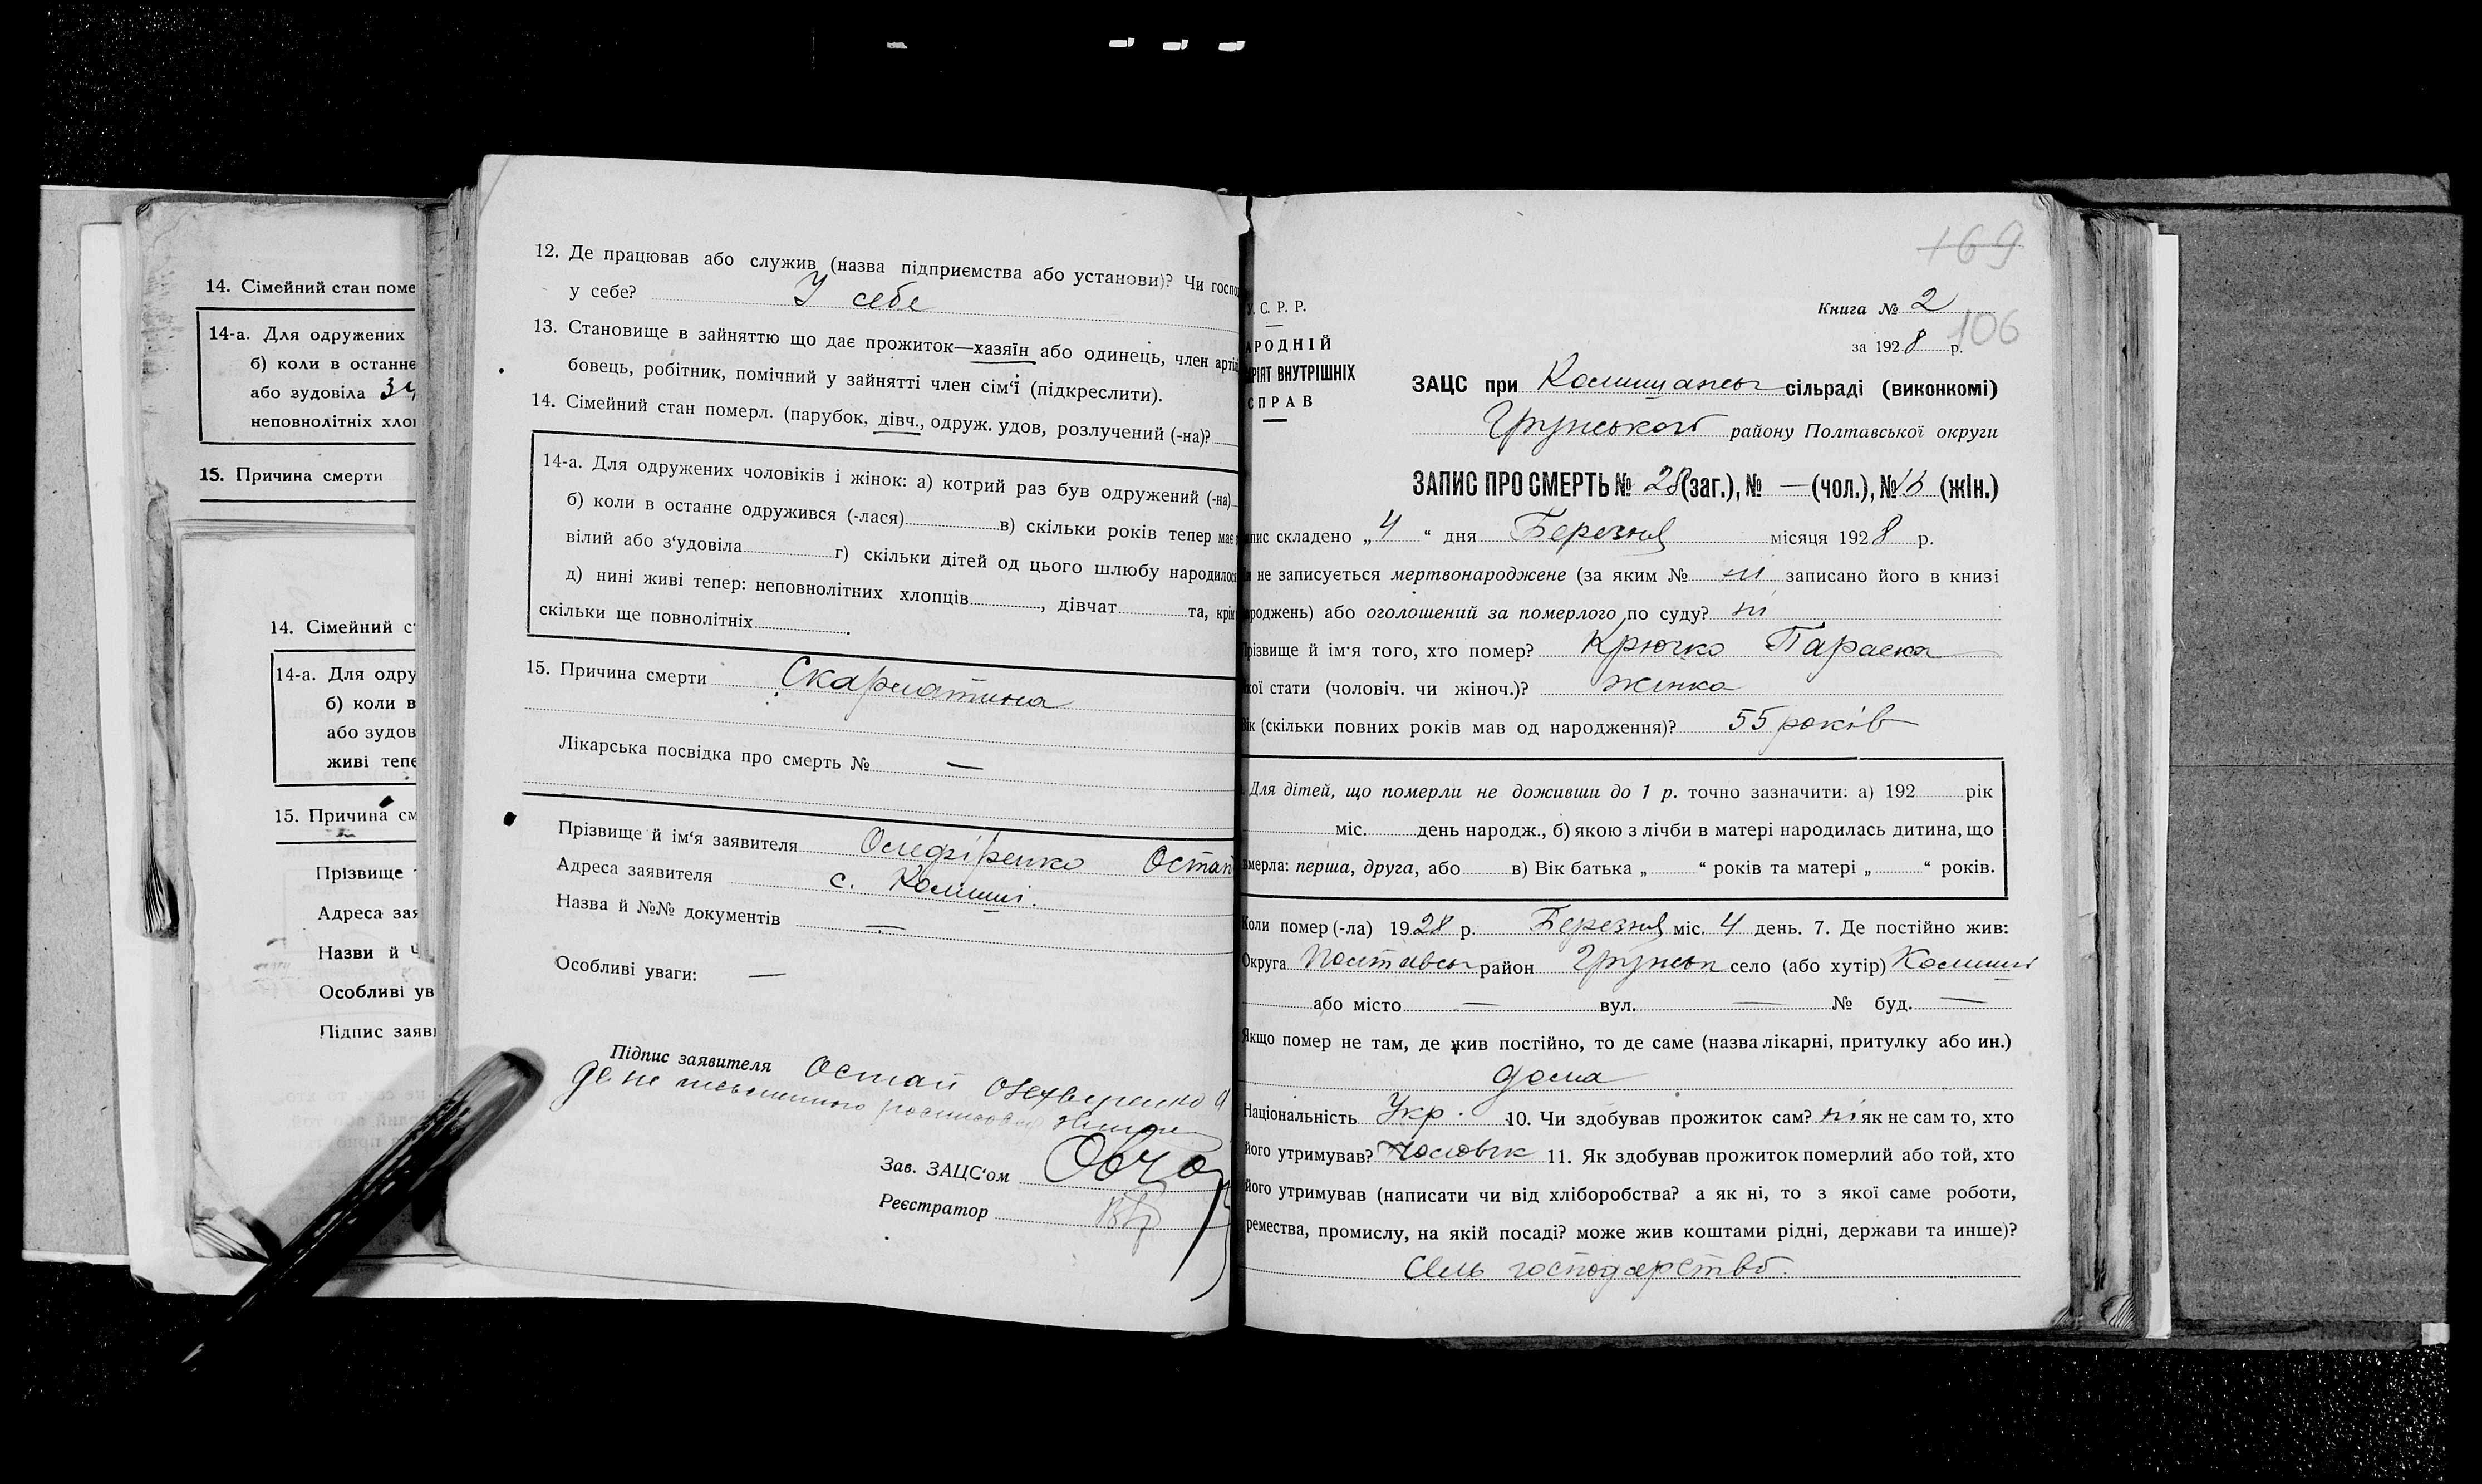 14. Сімейний стан поме
14-а. Для одружених
б) коли в останнє
або зудовіла
неповнолітніх хло
15. Причина смерти
14. Сімейний с
14-а. Для одру
б) коли в
або зудов
живі тепе
15. Причина см
Прізвище
Адреса зая
Назви й
Особливі ув
Підпис заяв
12. Де працював або служив (назва підприємства або установи)? Чи госпо
у себе? У себе
13. Становище в зайняттю що дає прожиток—хазяїн або одинець, член арті
бовець, робітник, помічний у зайнятті член сім‘ї (підкреслити).
14. Сімейний стан померл. (парубок, дівч., одруж. удов, розлучений (-на)?
14-а. Для одружених чоловіків і жінок: а) котрий раз був одружений (-на)
б) коли в останнє одружився (-лася) в) скільки років тепер має
вілий або з‘удовіла г) скільки дітей од цього шлюбу народилос
д) нині живі тепер: неповнолітніх хлопців, дівчат та, крім
скільки ще повнолітніх.
15. Причина смерти Скарлатина
Лікарська посвідка про смерть № —
Прізвище й ім‘я заявителя Остап
Адреса заявителя с. Комиші.
Назва й №№ документів —
Особливі уваги: —
Підпис заявителя Остап
Зав. ЗАЦС‘ом
Реєстратор
169
У. С. Р. Р.
Книга № 2
106
за 1928 р.
АРОДНІЙ
АРІЯТ ВНУТРІШНІХ
СПРАВ
ЗАЦС при Комишанськ сільраді (виконкомі)
Грунського району Полтавської округи
ЗАПИС ПРО СМЕРТЬ № 28 (заг.), № — (чол.), № (жін.)
апис складено „4“ дня Березня місяця 1928 р.
не записується мертвонароджене (за яким № ні записано його в книзі
ароджень) або оголошений за померлого по суду? ні
Прізвище й ім‘я того, хто помер? Крючко Параска
якої стати (чоловіч. чи жіноч.)? жінка
Вік (скільки повних років мав од народження)? 55 років
Для дітей, що померли не доживши до 1 р. точно зазначити: а) 192 рік
міс. день народж., б) якою з лічби в матері народилась дитина, що
вмерла: перша, друга, або в) Вік батька „ “ років та матері „ “ років.
Коли помер (-ла) 1928 р. Березня міс. 4 день. 7. Де постійно жив:
Округа Полтавськ район Грунськ село (або хутір) Комиші
або місто — вул. — № буд. —
Якщо помер не там, де жив постійно, то де саме (назва лікарні, притулку або ин.)
дома
Національність Укр. 10. Чи здобував прожиток сам? ні як не сам то, хто
його утримував? Чоловік 11. Як здобував прожиток померлий або той, хто
його утримував (написати чи від хліборобства? а як ні, то з якої саме роботи,
ремества, промислу, на якій посаді? може жив коштами рідні, держави та инше)?
Сель господарство.